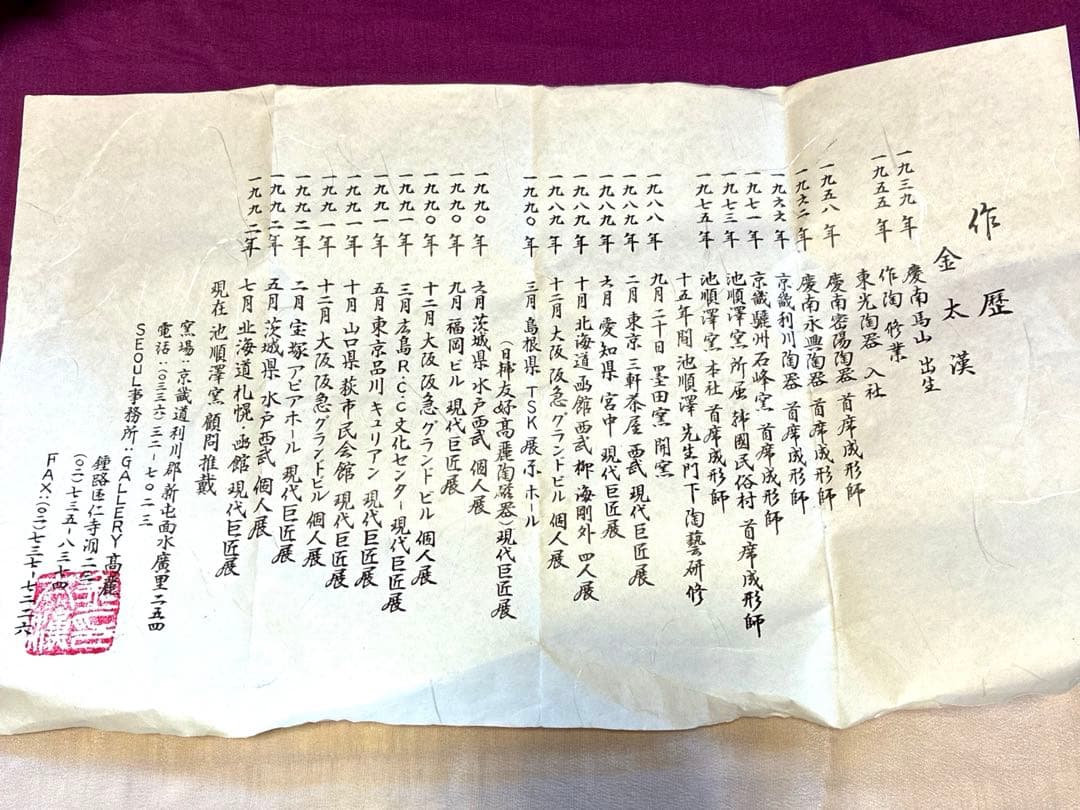 作歴
金太漢
一九三九年 慶南馬山 出生
一九五五年 作陶修業
東光陶器 入社
一九五八年 慶南密陽陶器 首席成形師
慶南永興陶器 首席成形師
一九六二年 京畿利川陶器 首席成形師
一九六六年 京畿驪州石峰窯 首席成形師
一九七一年 池順澤窯 所属 韓國民俗村 首席成形師
一九七三年 池順澤窯 本社 首席成形師
一九七五年 十五年間 池順澤 先生門下 陶藝研修
一九八八年 九月二十日 墨田窯 開窯
一九八九年 二月 東京 三軒茶屋 西武 現代巨匠展
一九八九年 六月 愛知県 宮中 現代巨匠展
一九八九年 十月 北海道 函館 西武 柳海剛外 四人展
一九八九年 十二月 大阪 阪急グランドビル 個人展
一九九〇年 三月 島根県 TSK 展示ホール
(日韓友好高麗陶磁器)現代巨匠展
一九九〇年 六月 茨城県 水戸西武 個人展
一九九〇年 九月 福岡ビル 現代巨匠展
一九九〇年 十二月 大阪 阪急グランドビル 個人展
一九九一年 三月 広島 R.C.C文化センター 現代巨匠展
一九九一年 五月 東京品川 キュリアン 現代巨匠展
一九九一年 十月 山口県 萩市民会館 現代巨匠展
一九九一年 十二月 大阪 阪急グランドビル 個人展
一九九二年 二月 宝塚 アピアホール 現代巨匠展
一九九二年 五月 茨城県 水戸西武 個人展
一九九二年 七月 北海道 札幌・函館 現代巨匠展
現在 池順澤窯 顧問推戴
窯場:京畿道利川郡新屯面水廣里二五四
電話:(〇三三六)三二-七〇二三
SEOUL事務所:GALLERY高麗
鍾路区仁寺洞二〇
(〇二)七三五-八三七四
FAX:(〇二)七三七-七二二六